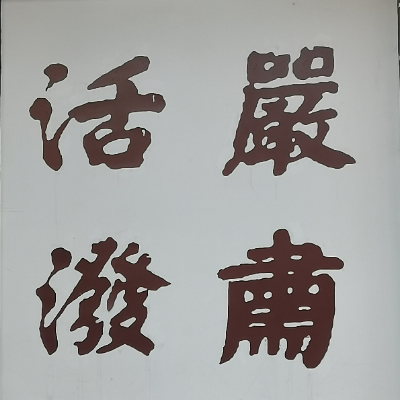 嚴肅
活潑